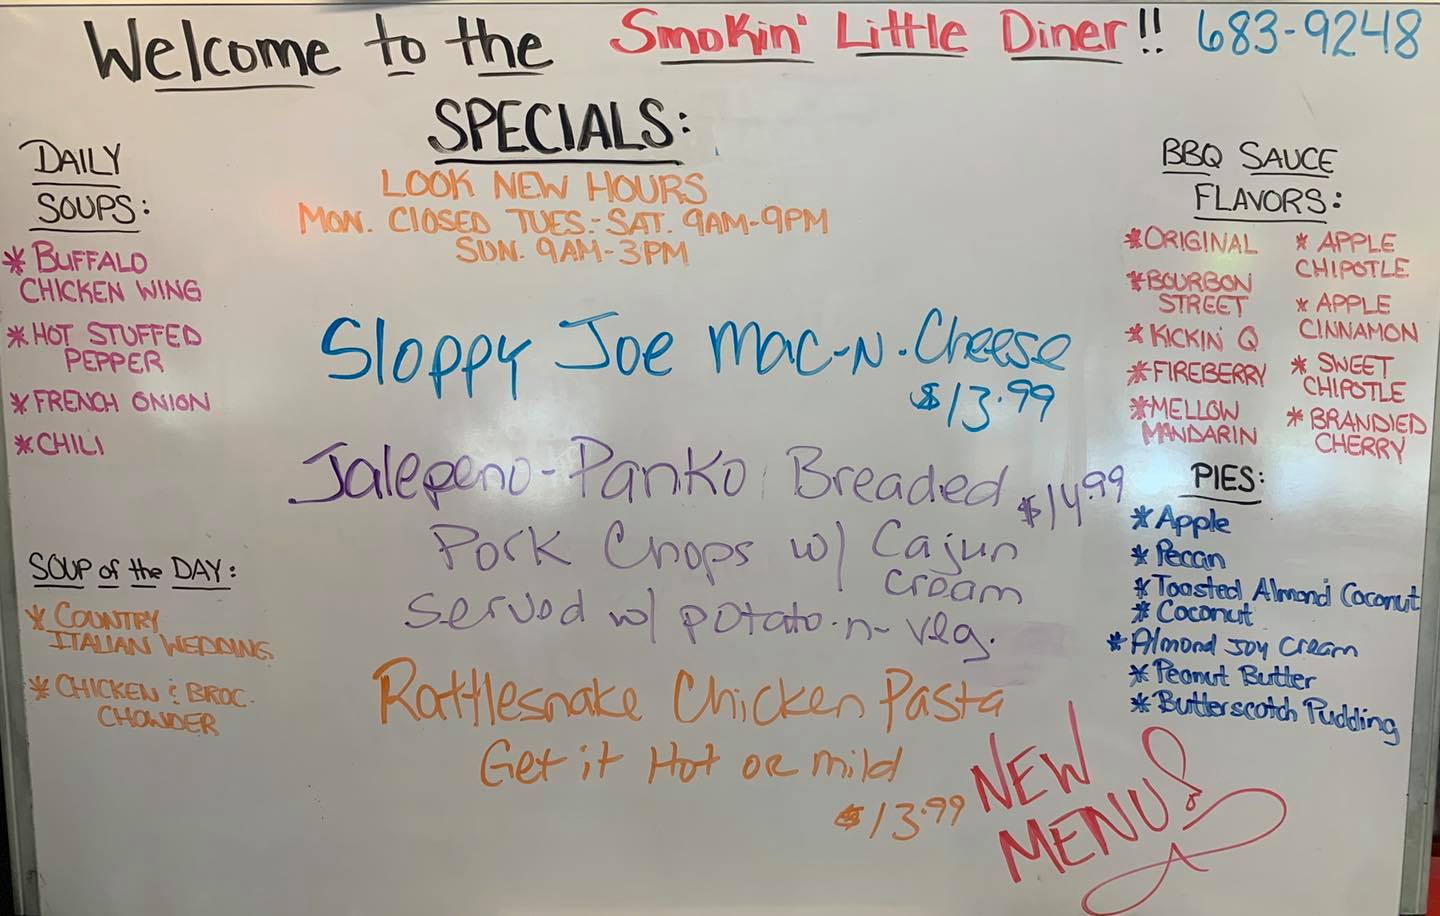 Welcome to the Smokin' Little Diner!! 683-9248
SPECIALS:
LOOK NEW HOURS
MON. CLOSED TUES.-SAT. 9AM-9PM
SUN. 9AM-3PM
DAILY
SOUPS:
* BUFFALO
CHICKEN WING
* HOT STUFFED
PEPPER
* FRENCH ONION
* CHILI
SOUP of the DAY:
* COUNTRY
ITALIAN WEDDING
* CHICKEN & BROC.
CHOWDER
Sloppy Joe Mac-N-Cheese
$13.99
Jalepeno-Panko Breaded $14.99
Pork Chops w/ Cajun
cream
served w/ potato-n-veg.
Rattlesnake Chicken Pasta
Get it Hot or mild
$13.99
BBQ SAUCE
FLAVORS:
* ORIGINAL
* BOURBON
STREET
* KICKIN Q
* FIREBERRY
* MELLOW
MANDARIN
* APPLE
CHIPOTLE
* APPLE
CINNAMON
* SWEET
CHIPOTLE
* BRANDIED
CHERRY
PIES:
* Apple
* Pecan
* Toasted Almond Coconut
* Coconut
* Almond Joy Cream
* Peanut Butter
* Butterscotch Pudding
NEW
MENU!